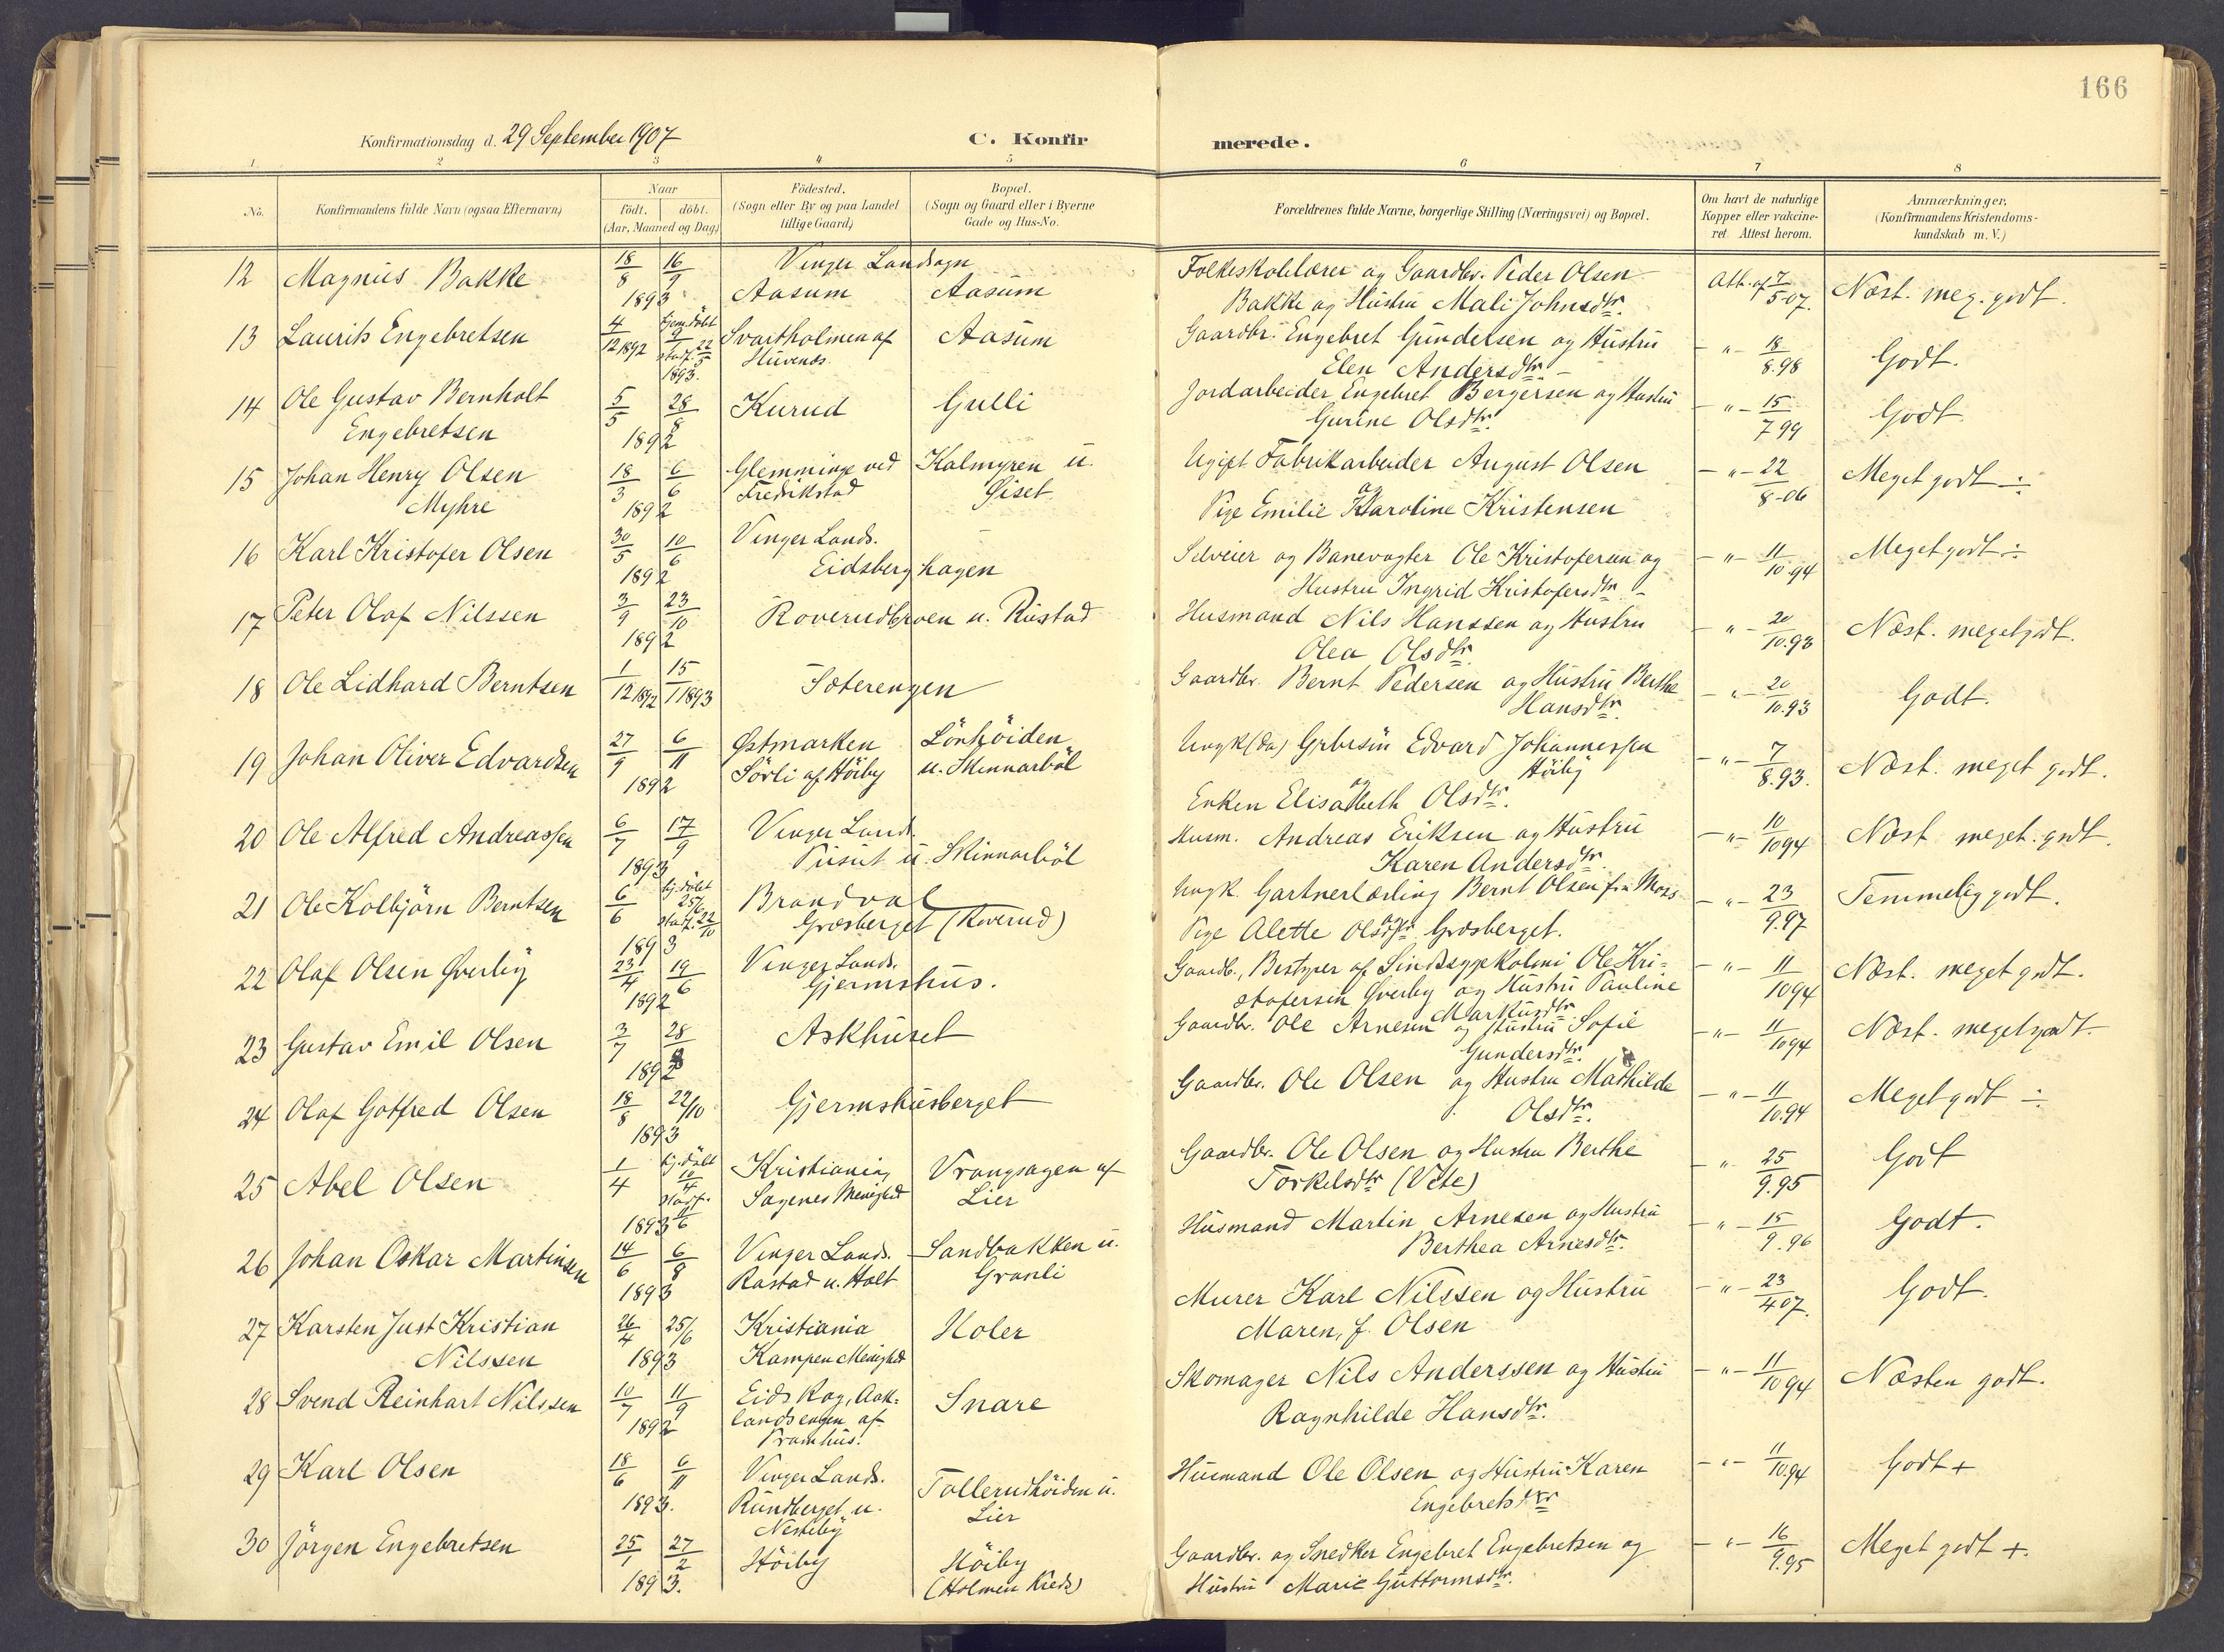 166
Konfirmationsdag d. 29 September 1907 C. Konfirmerede.
1 2 3 4 5 6 7 8
No. Konfirmandens fulde Navn (ogsaa Efternavn) Naar födt. döbt. (Aar, Maaned og Dag) Födested. (Sogn eller By og paa Landet tillige Gaard) Bopæl. (Sogn og Gaard eller i Byerne Gade og Hus-No. Forældrenes fulde Navne, borgerlige Stilling (Næringsvei) og Bopæl. Om havt de naturlige Kopper eller vakcineret Attest herom. Anmærkninger. (Konfirmandens Kristendomskundskab m. V.)
12 Magnus Bakke 18/8 16/9 1893 Vinger Landsogn Aasum Aasum Folkeskolelærer og Gaardbr. Peder Olsen
Bakke og Hustru Mali Johnsdtr. Att. af 7/5 07. Næst. meg. godt.
13 Laurits Engebretsen 4/12 1892 hjemdöbt stadf. 22/5 1893. Svartholmen af Aasum Gaardbr. Engebret Gundersen og Hustru
Elen Andersdtr. - " - 18/8.98 Godt.
14 Ole Gustav Bernholt
Engebretsen 5/5 28/8 1892 Kurud Gulli Jordarbeider Engebret Bergersen og Hustru
Gurine Olsdtr. - " - 15/7 99 Godt
15 Johan Henry Olsen
Myhre 18/3 6/6 1892 Glemminge ved
Fredrikstad Kalmyren u.
Øiset Ugift Fabrikarbeider August Olsen
og
Pige Emilie Karoline Kristensen - " - 22/8-06 Meget godt ÷
16 Karl Kristofer Olsen 30/5 10/6 1892 Vinger Lands.
Eidsberghagen Selveier og Banevogter Ole Kristofersen og
Hustru Ingrid Kristofersdtr. - " - 11/10.94 Meget godt ÷
17 Peter Olaf Nilssen 3/9 23/10 1892 Roverudbroen u. Rustad Husmand Nils Hanssen og Hustru
Olea Olsdtr. - " - 20/10.93 Næst. meget godt.
18 Ole Lidhard Berntsen 1/12 1892 15/1 1893 Sæterengen Gaardbr. Bernt Pedersen og Hustru Berthe
Hansdtr. - " - 20/10.93 Godt.
19 Johan Oliver Edvardsen 27/9 6/11 1892 Østmarken
Sörli af Höiby Lönhöiden
u. Skinnarböl Ungk (da) Grbrsön Edvard Johannessen
Höiby
og
Enken Elisabeth Olsdtr. - " - 7/8.93. Næst. meget godt.
20 Ole Alfred Andreassen 6/7 17/9 1893 Vinger Lands.
Pusut u. Skinnarböl Husm. Andreas Eriksen og Hustru
Karen Andersdtr. - " - 10/10 94 Næst meget godt.
21 Ole Kolbjörn Berntsen 6/6 hj. döbt 25/6 stadf. 22/10 1893 Brandval
Græsberget (Roverud) Ungk. Gartnerlærling Bernt Olsen fra Moss
og
Pige Alette Olsdtr. Græsberget. - " - 23/9.97 Temmelig godt.
22 Olaf Olsen Øverby 23/4 19/6 1892 Vinger Lands.
Gjermshus. Gaardb., Bestyrer af Sindssygekoloni Ole Kri-
stofersen Øverby og Hustru Pauline
Markusdtr. - " - 11/10 94 Næst. meget godt.
23 Gustav Emil Olsen 3/7 28/8 1892 Askhuset Gaardbr. Ole Arnesen og Hustru Sofie
Gundersdtr. - " - 11/10 94 Næst. meget godt.
24 Olaf Gotfred Olsen 18/8 22/10 1893 Gjermshusberget Gaardbr. Ole Olsen og Hustru Mathilde
Olsdtr. - " - 11/10.94 Meget godt ÷
25 Abel Olsen 1/4 hj. döbt 10/4 stadf. 11/6 1893 Kristiania,
Sagenes Menighed Vrangsagen af
Lier Gaardbr. Ole Olsen og Hustru Berthe
Torkelsdtr (Vete) - " - 25/9.95 Godt
26 Johan Oskar Martinsen 14/6 6/8 1893 Vinger Lands.
Rastad u. Holt Sandbakken u.
Granli Husmand Martin Arnesen og Hustru
Berthea Arnesdtr. - " - 15/9.96 Godt.
27 Karsten Just Kristian
Nilssen 26/4 25/6 1893 Kristiania
Kampen Menighed Holer Murer Karl Nilssen og Hustru
Maren, f. Olsen - " - 23/4 07. Godt.
28 Svend Reinhart Nilssen 10/7 11/9 1892 Eidskog, Aak-
landsengen af
Pramhus. Snare Skomager Nils Anderssen og Hustru
Ragnhilde Hansdtr. - " - 11/10 94 Næsten godt.
29 Karl Olsen 18/6 6/11 1893. Vinger Lands.
Rundberget u.
Nesteby Tollerudhöiden u.
Lier Husmand Ole Olsen og Hustru Karen
Engebretsdtr - " - 11/10.94 Godt +
30 Jörgen Engebretsen 25/1 27/2 1893. Höiby Höiby
(Holmen Kreds) Gaardbr. og Snedker Engebret Engebretsen og
Hustru Marie Guttormsdtr. - " - 16/9.95 Meget godt +.